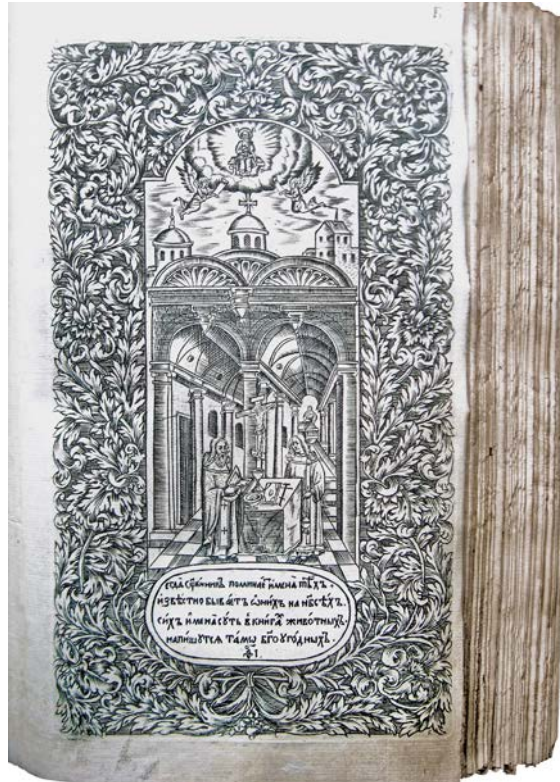 егда сщ҃нникъ поминаетъ имена тѣхъ.
извѣстно бываетъ ѡ нихъ на нб҃сѣхъ.
сихъ имена сꙋть в книгахъ животныхъ.
напишꙋтся тамѡ бг҃оугодныхъ.